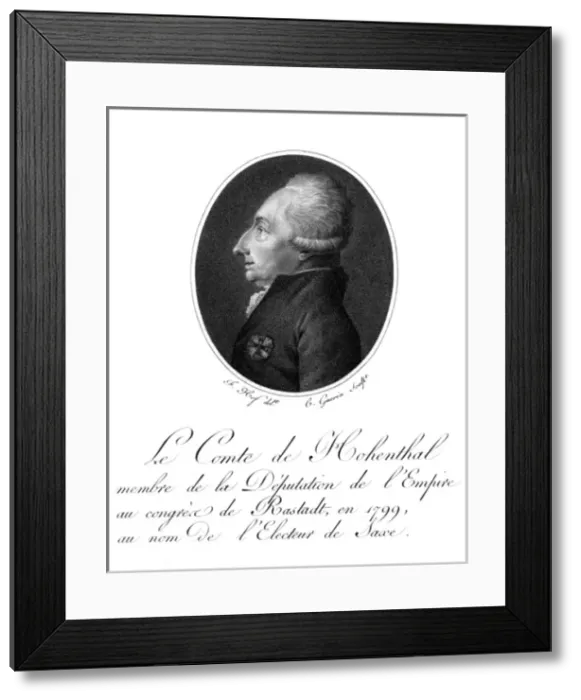 C. Guerin Sculpt.
Le Comte de Hohenthal
membre de la Députation de l'Empire
au congrès de Rastadt, en 1799,
au nom de l'Electeur de Saxe.